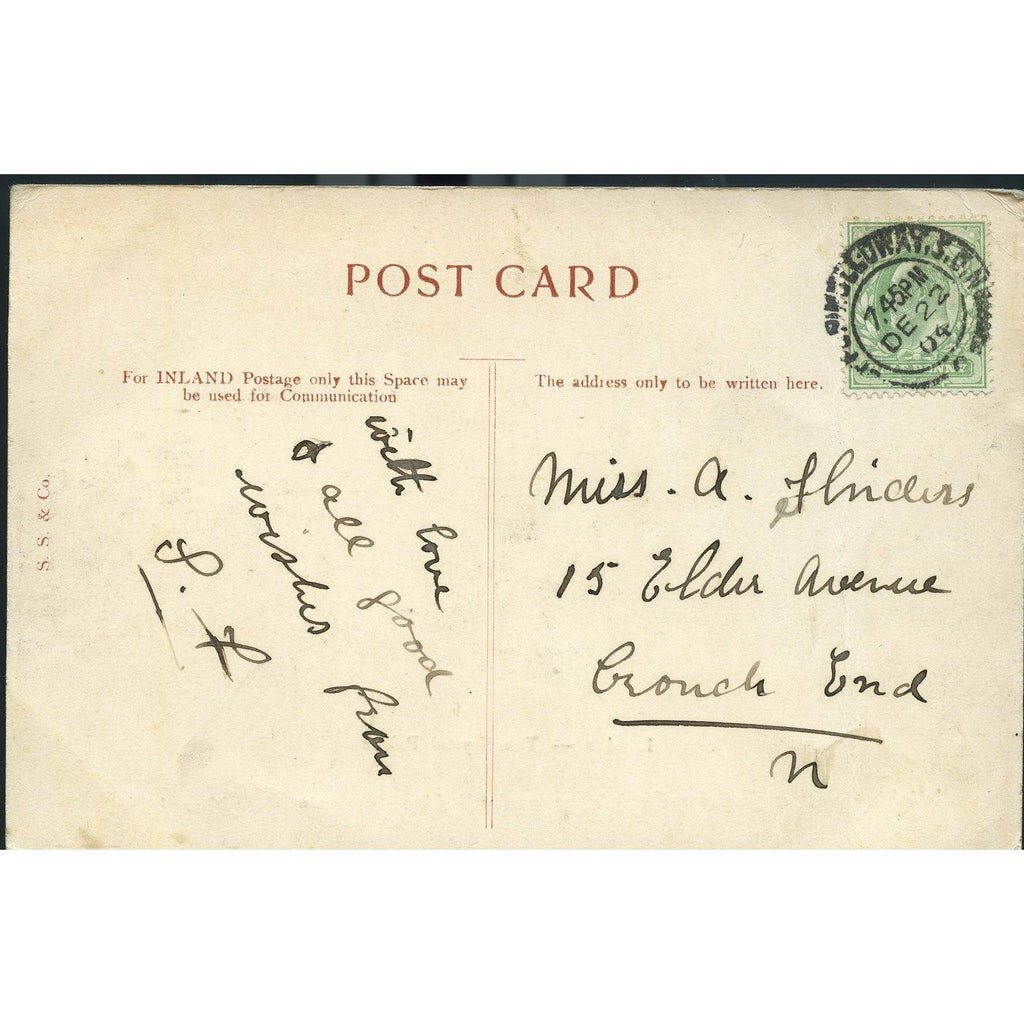 POST CARD
For INLAND Postage only this Space may
be used for Communication
The address only to be written here.
S. S. & Co.
with love
& all good
wishes from
S. F
Miss. A. Flinders
15 Elder Avenue
Crouch End
N
HOLLOWAY, S.O.N
7.45PM
DE 22
04